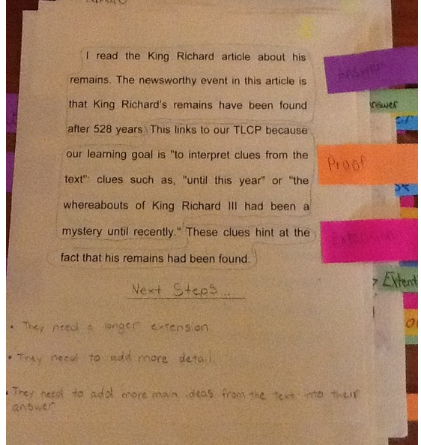 I read the King Richard article about his
remains. The newsworthy event in this article is
that King Richard's remains have been found
after 528 years. This links to our TLCP because
our learning goal is "to interpret clues from the
text": clues such as, "until this year" or "the
whereabouts of King Richard III had been a
mystery until recently." These clues hint at the
fact that his remains had been found.
Next Steps...
• They need a longer extension.
• They need to add more detail.
• They need to add more main ideas from the text into their
answer
Answer
Answer
Proof
Extension